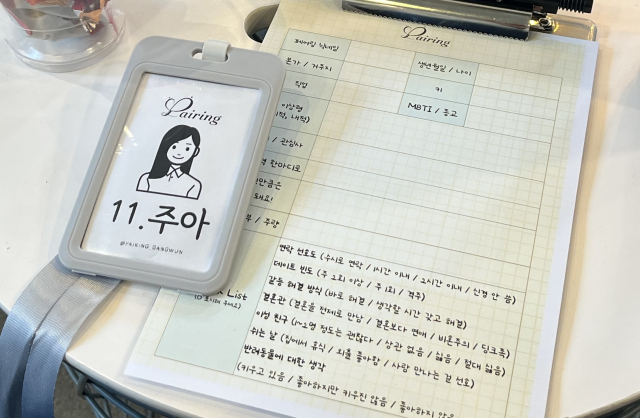 Pairing
11.주아
@PAIRING_GANGWON
Pairing
페어링 닉네임
본가 / 거주지
생년월일 / 나이
직업
키
이상형
MBTI / 종교
, 내적)
/ 관심사
한마디로
만큼은
/ 주량
List
연락 선호도 (수시로 연락 / 1시간 이내 / 2시간 이내 / 신경 안 씀)
데이트 빈도 (주 2회 이상 / 주 1회 / 격주)
갈등 해결 방식 (바로 해결 / 생각할 시간 갖고 해결)
결혼관 (결혼을 전제로 만남 / 결혼보다 연애 / 비혼주의 / 딩크족)
이성 친구 (1~2명 정도는 괜찮다 / 상관 없음 / 싫음 / 절대 싫음)
쉬는 날 (집에서 휴식 / 외출 좋아함 / 사람 만나는 걸 선호)
반려동물에 대한 생각
(키우고 있음 / 좋아하지만 키우진 않음 / 좋아하지 않음